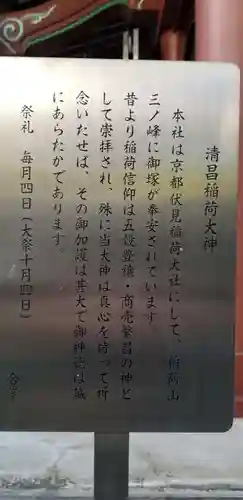 清昌稲荷大神
本社は京都伏見稲荷大社にして、稲荷山
三ノ峰に御塚が奉安されています
昔より稲荷信仰は五穀豊穣・商売繁昌の神と
して崇拝され、殊に当大神は真心を持って祈
念いたせば、その御加護は甚大で御神徳は誠
にあらたかであります。
祭礼 毎月四日（大祭十月四日）